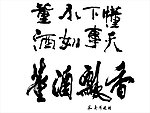 懂天
下事
不如
董酒
董酒飘香